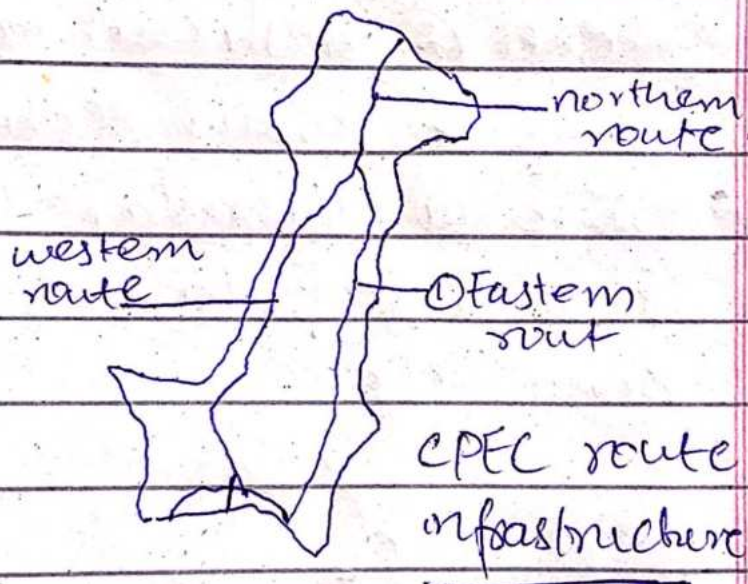 northern
route
western
route
① Eastern
rout
CPEC route
infrastructure